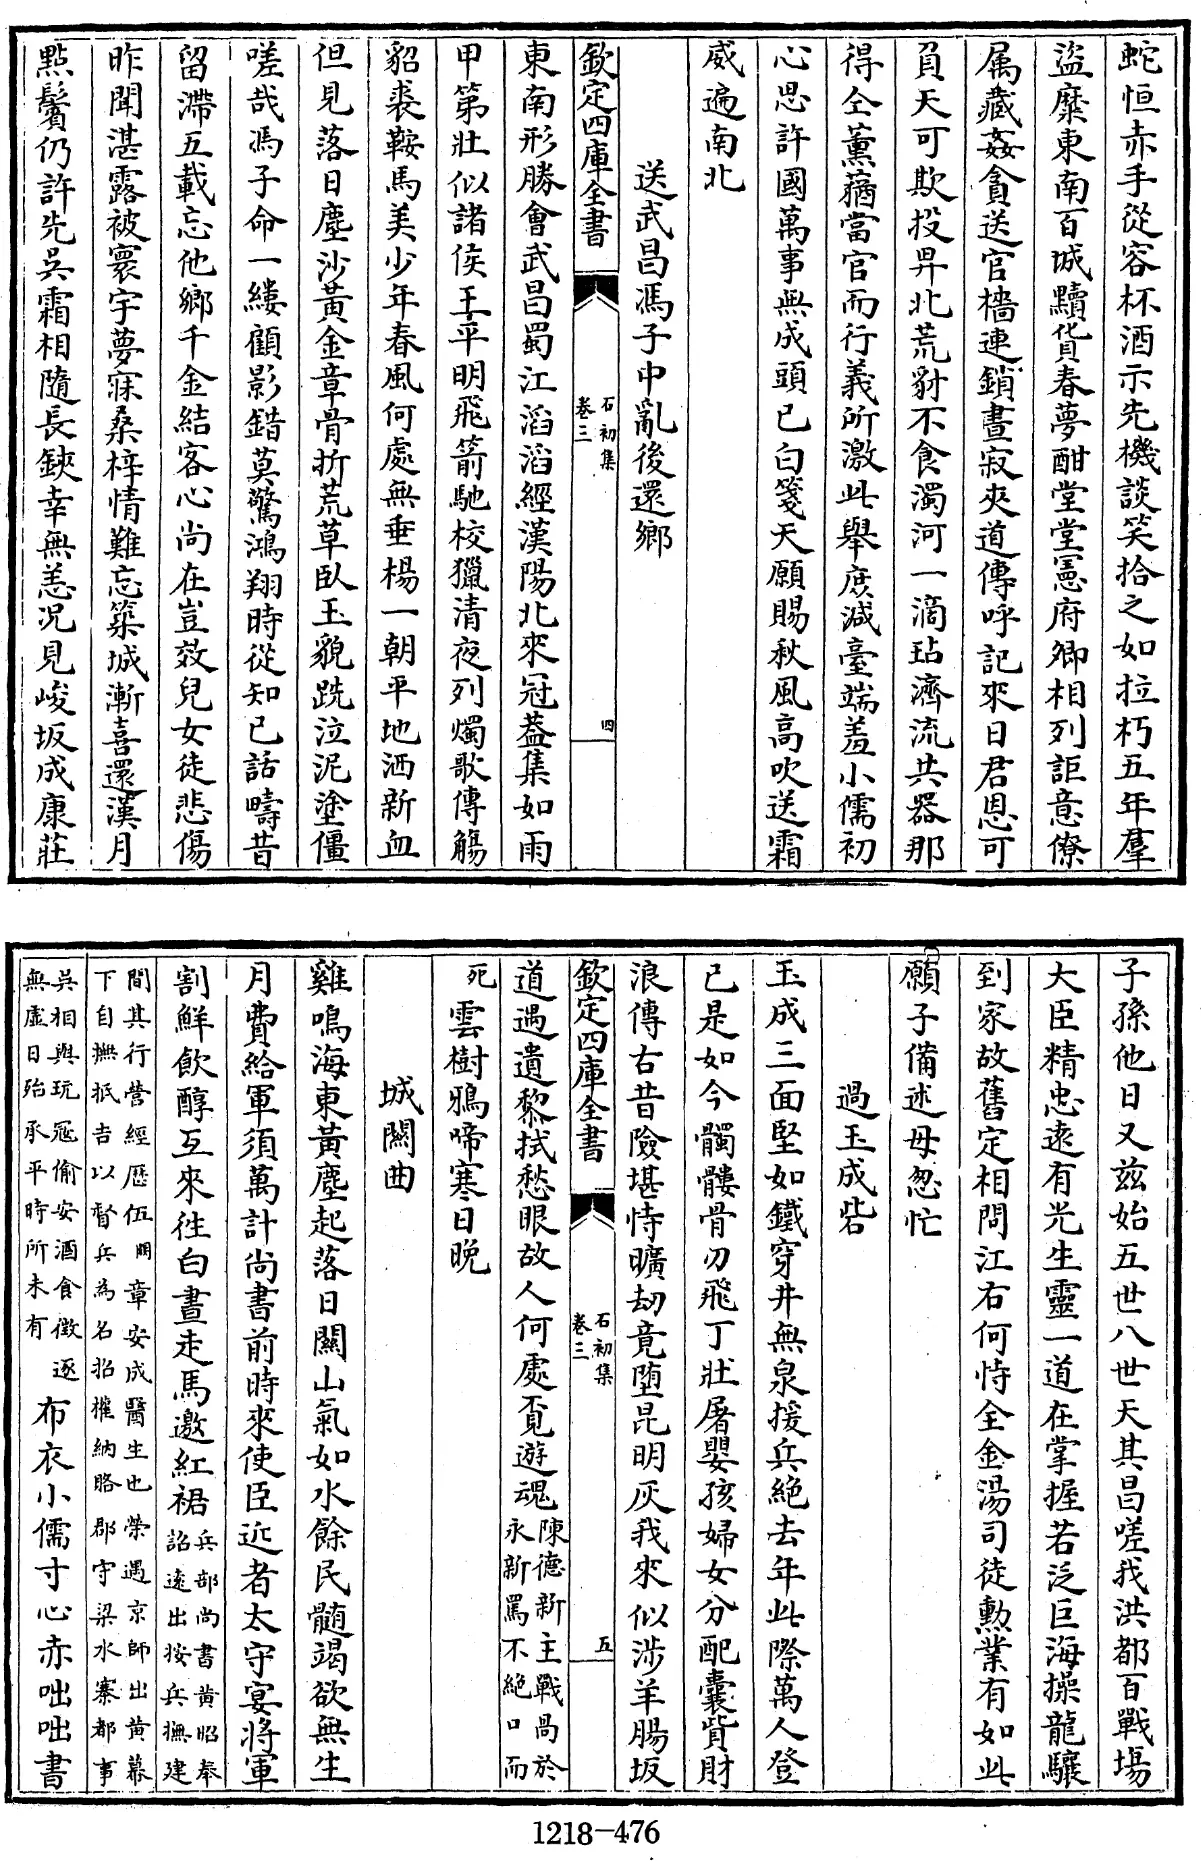 蛇恒赤手從容杯酒示先機談笑拾之如拉朽五年羣
盜糜東南百城黷貨春夢酣堂堂憲府卿相列詎意僚
属藏姦貪送官檣連鎖晝寂夾道傳呼記來日君恩可
負天可欺投畀北荒豺不食濁河一滴玷濟流共器那
得仝薰蕕當官而行義所激此舉庶減臺端羞小儒初
心思許國萬事無成頭已白箋天願賜秋風高吹送霜
威遍南北
送武昌馮子中亂後還鄉
欽定四庫全書
石初集
卷三
四
東南形勝會武昌蜀江滔滔經漢陽北來冠葢集如雨
甲第壯似諸侯王平明飛箭馳校獵清夜列燭歌傳觴
貂裘鞍馬美少年春風何處無垂楊一朝平地洒新血
但見落日塵沙黃金章骨折荒草臥玉貌跣泣泥塗僵
嗟哉馮子命一縷顧影錯莫驚鴻翔時從知已話疇昔
留滯五載忘他鄉千金結客心尚在豈效兒女徒悲傷
昨聞湛露被寰宇夢寐桑梓情難忘築城漸喜還漢月
㸃鬢仍許先吳霜相隨長鋏幸無恙况見峻坂成康莊
子孫他日又茲始五世八世天其昌嗟我洪都百戰塲
大臣精忠逺有光生靈一道在掌握若泛巨海操龍驤
到家故舊定相問江右何恃全金湯司徒勲業有如此
願子備述毋怱忙
過玉成砦
玉成三面堅如鐵穿井無泉援兵絶去年此際萬人登
已是如今髑髏骨刃飛丁壯屠嬰孩婦女分配囊貲財
浪傳古昔險堪恃曠刼竟墮昆明灰我來似涉羊腸坂
欽定四庫全書
石初集
卷三
五
道遇遺黎拭愁眼故人何處覔遊魂陳德新主戰咼於
永新罵不絶口而
死雲樹鴉啼寒日晚
城闕曲
雞鳴海東黃塵起落日關山氣如水餘民髓竭欲無生
月費給軍須萬計尚書前時來使臣近者太守宴將軍
割鮮飲醇互來徃白晝走馬邀紅裙兵部尚書黃昭奉
詔逺出按兵撫建
間其行營經歷伍明章安成醫生也榮遇京師出黃幕
下自撫抵吉以督兵為名招權納賂郡守梁水寨都事
吳相與玩寇偷安酒食徴逐
無虛日殆承平時所未有布衣小儒寸心赤咄咄書
1218-476